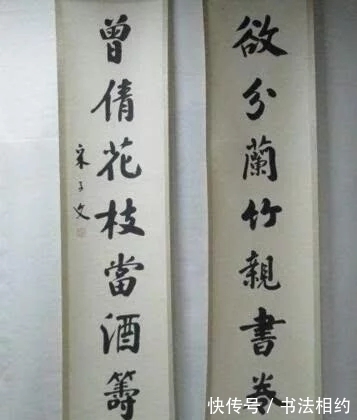 欲分蘭竹親書卷
曾倩花枝當酒籌
宋子文
快传号/书法相约